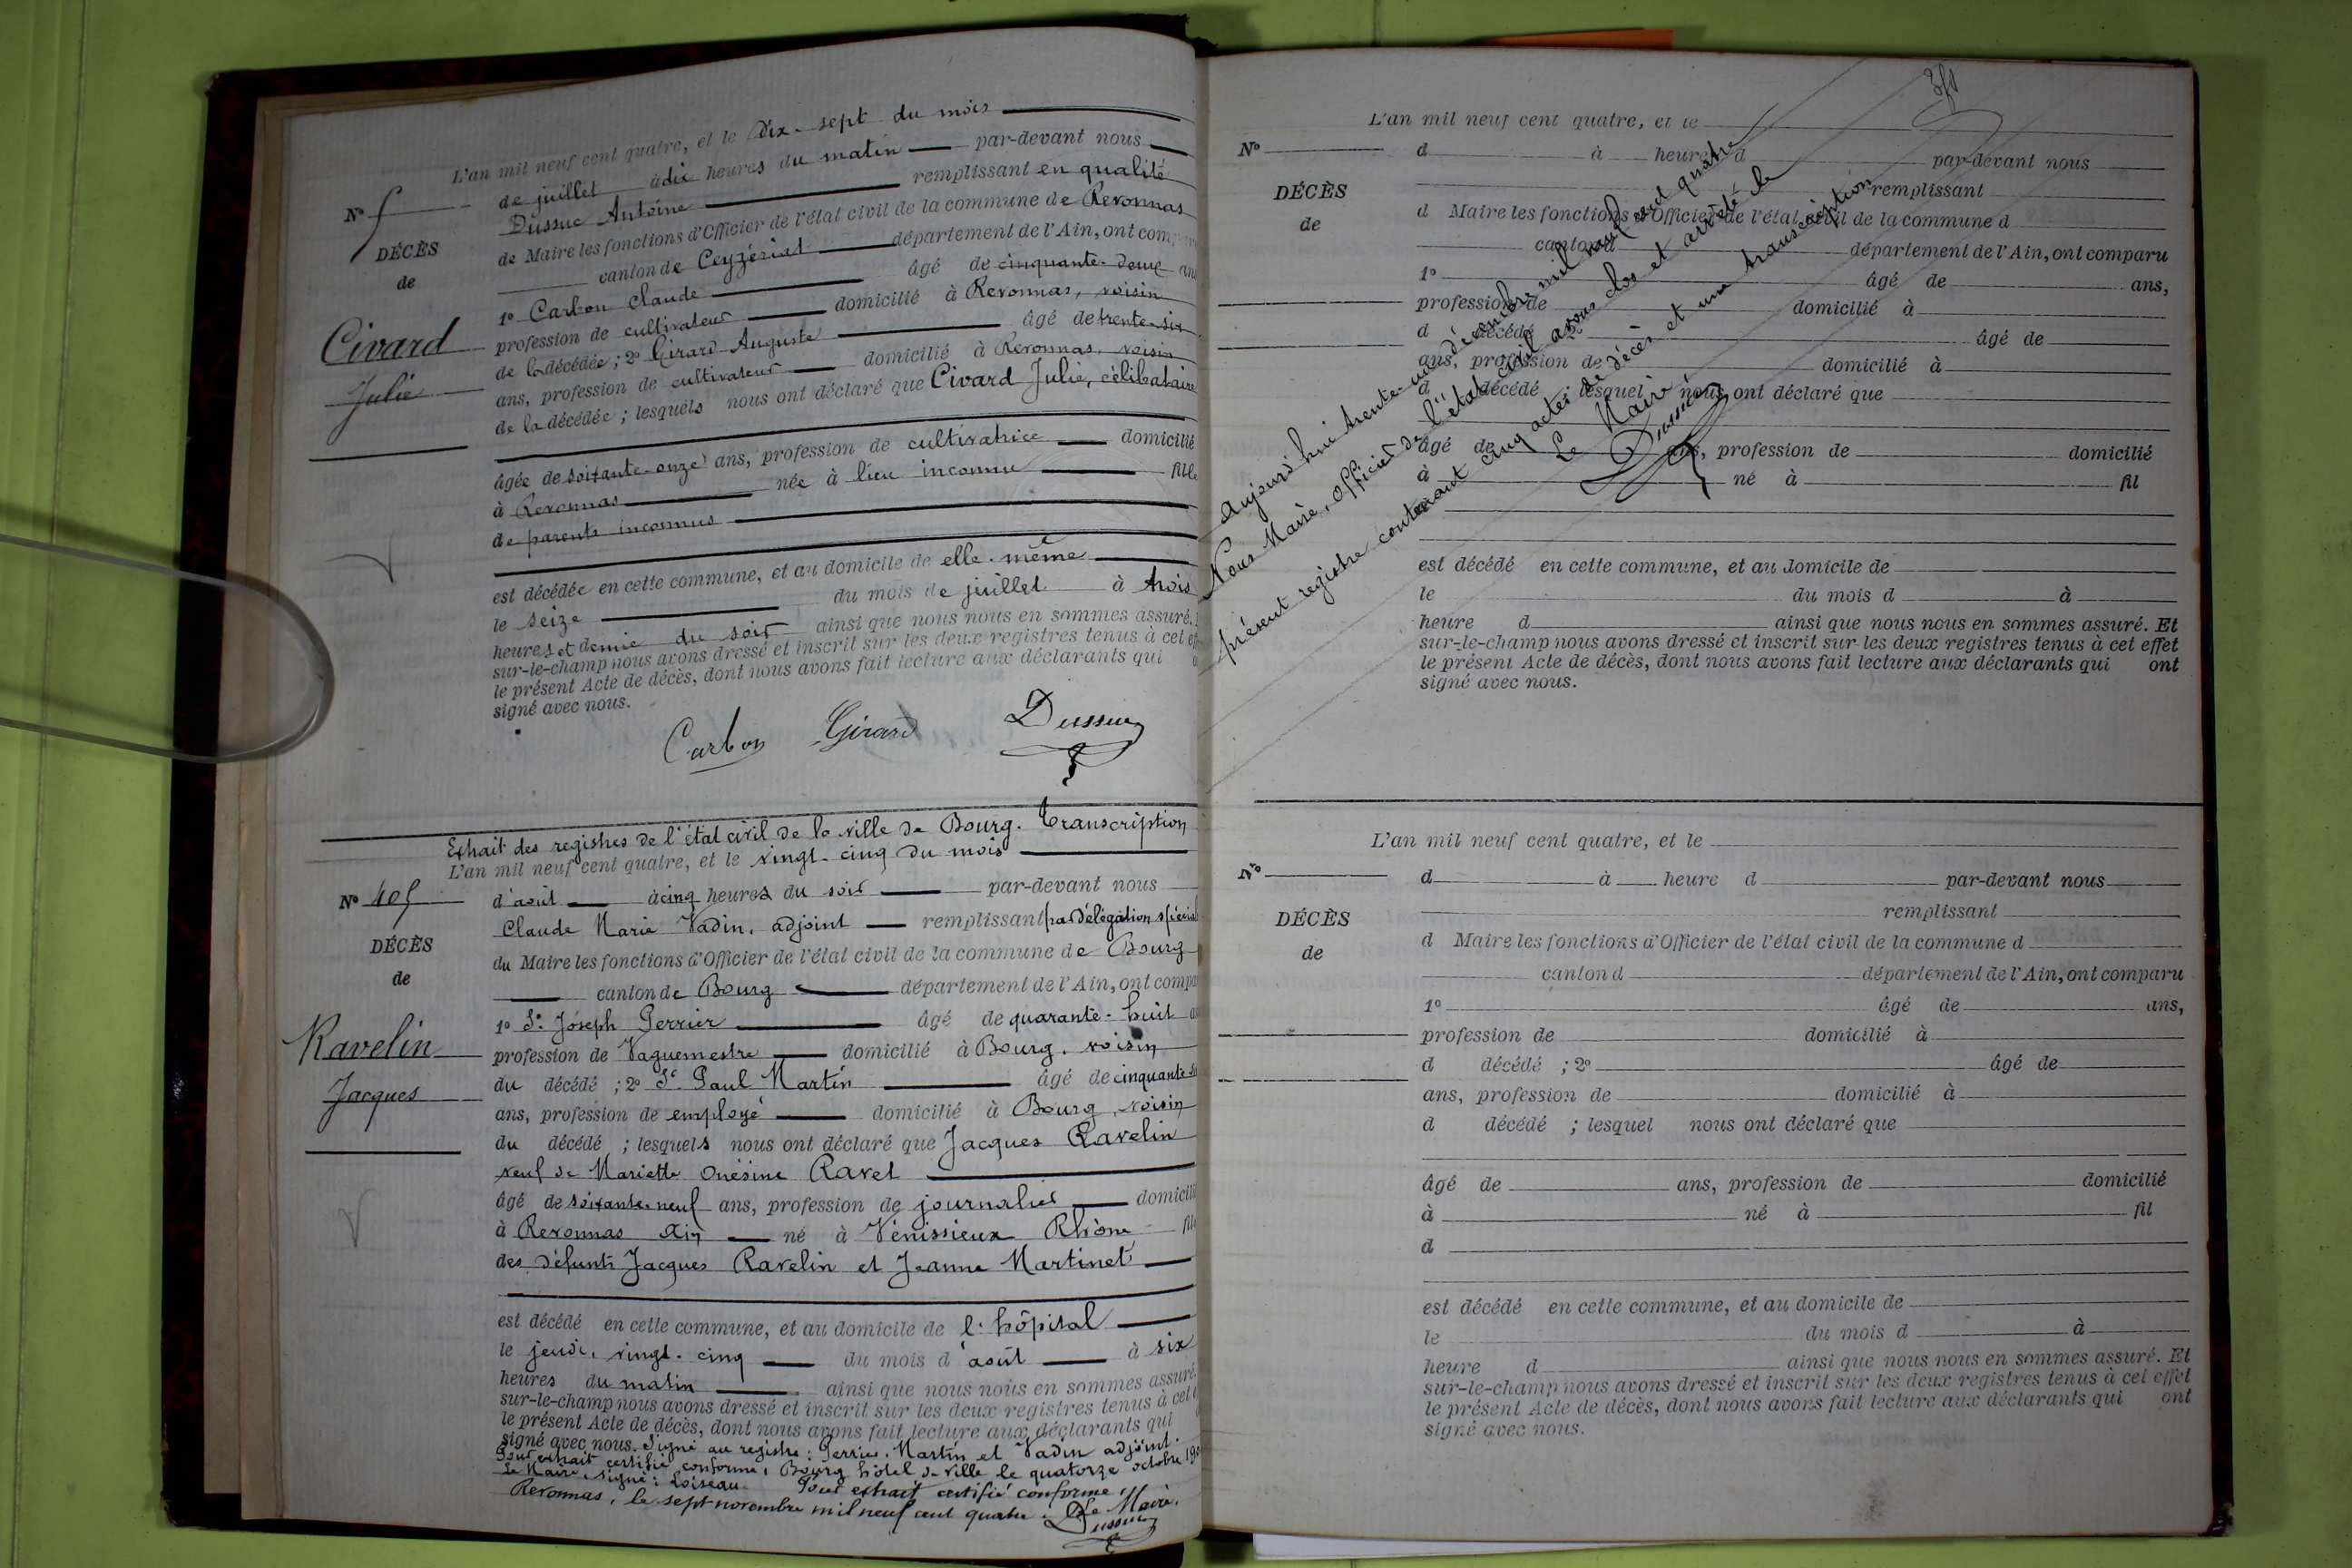 L'an mil neuf cent quatre, et le dix-sept du mois
de juillet à dix heures du matin par-devant nous
Dussuc Antoine remplissant en qualité
de Maire les fonctions d'Officier de l'état civil de la commune de Revonnas
canton de Ceyzériat département de l'Ain, ont compar
1° Carbon Claude âgé de cinquante-deux ans
profession de cultivateur domicilié à Revonnas, voisin
de la décédée ; 2° Girard Auguste âgé de trente-six
ans, profession de cultivateur domicilié à Revonnas, voisin
de la décédée ; lesquels nous ont déclaré que Civard Julie, célibataire
âgée de soixante-onze ans, profession de cultivatrice domicilié
à Revonnas née à lieu inconnu fille
de parents inconnus
est décédée en cette commune, et au domicile de elle-même
le seize du mois de juillet à trois
heures et demie du soir ainsi que nous nous en sommes assuré.
sur-le-champ nous avons dressé et inscrit sur les deux registres tenus à cet eff
le présent Acte de décès, dont nous avons fait lecture aux déclarants qui
signé avec nous.
Carbon Girard Dussuc
N° 5
DÉCÈS
de
Civard
Julie
Extrait des registres de l'état civil de la ville de Bourg. Transcription
L'an mil neuf cent quatre, et le vingt-cinq du mois
d'août à cinq heures du soir par-devant nous
Claude Marie Vadin, adjoint remplissant par délégation spéciale
du Maire les fonctions d'Officier de l'état civil de la commune de Bourg
canton de Bourg département de l'Ain, ont compa
1° Sr. Joseph Perrier âgé de quarante-huit
profession de Vaguemestre domicilié à Bourg, voisin
du décédé ; 2° Sr. Paul Martin âgé de cinquante
ans, profession de employé domicilié à Bourg, voisin
du décédé ; lesquels nous ont déclaré que Jacques Ravelin
veuf de Mariette Onésime Ravet
âgé de soixante-neuf ans, profession de journalier domicilié
à Revonnas Ain né à Vénissieux Rhône fils
des défunts Jacques Ravelin et Jeanne Martinet
est décédé en cette commune, et au domicile de l'hôpital
le jeudi, vingt-cinq du mois d'août à six
heures du matin ainsi que nous nous en sommes assuré.
sur-le-champ nous avons dressé et inscrit sur les deux registres tenus à cet
le présent Acte de décès, dont nous avons fait lecture aux déclarants qui
signé avec nous. Signé au registre : Perrier, Martin et Vadin adjoint.
Pour extrait certifié conforme, Bourg hôtel de ville le quatorze octobre
Le Maire, signé : Loiseau. Pour extrait certifié conforme,
Revonnas, le sept novembre mil neuf cent quatre. Le Maire.
Dussuc
N° 405
DÉCÈS
de
Ravelin
Jacques
L'an mil neuf cent quatre, et le
d à heure d par-devant nous
remplissant
d Maire les fonctions d'Officier de l'état civil de la commune d
canton d département de l'Ain, ont comparu
1° âgé de ans,
profession de domicilié à
d décédé ; 2° âgé de
ans, profession de domicilié à
d décédé ; lesquel nous ont déclaré que
âgé de ans, profession de domicilié
à né à fil
d
est décédé en cette commune, et au domicile de
le du mois d à
heure d ainsi que nous nous en sommes assuré. Et
sur-le-champ nous avons dressé et inscrit sur les deux registres tenus à cet effet
le présent Acte de décès, dont nous avons fait lecture aux déclarants qui ont
signé avec nous.
N°
DÉCÈS
de
Aujourd'hui trente-un décembre mil neuf cent quatre
Nous Maire, officier de l'état civil avons clos et arrêté le
présent registre contenant cinq actes de décès et une transcription
Le Maire
Dussuc
L'an mil neuf cent quatre, et le
d à heure d par-devant nous
remplissant
d Maire les fonctions d'Officier de l'état civil de la commune d
canton d département de l'Ain, ont comparu
1° âgé de ans,
profession de domicilié à
d décédé ; 2° âgé de
ans, profession de domicilié à
d décédé ; lesquel nous ont déclaré que
âgé de ans, profession de domicilié
à né à fil
d
est décédé en cette commune, et au domicile de
le du mois d à
heure d ainsi que nous nous en sommes assuré. Et
sur-le-champ nous avons dressé et inscrit sur les deux registres tenus à cet effet
le présent Acte de décès, dont nous avons fait lecture aux déclarants qui ont
signé avec nous.
N°
DÉCÈS
de